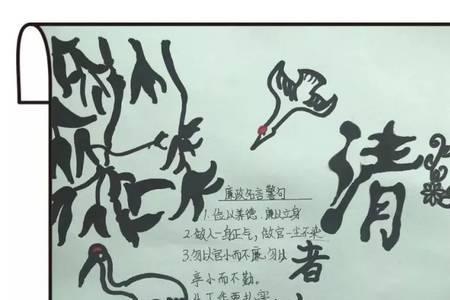 清
者
廉政名言警句
1.俭以养德.廉以立身
2.做人一身正气，做官一尘不染
3.勿以官小而不廉.勿以
事小而不勤。